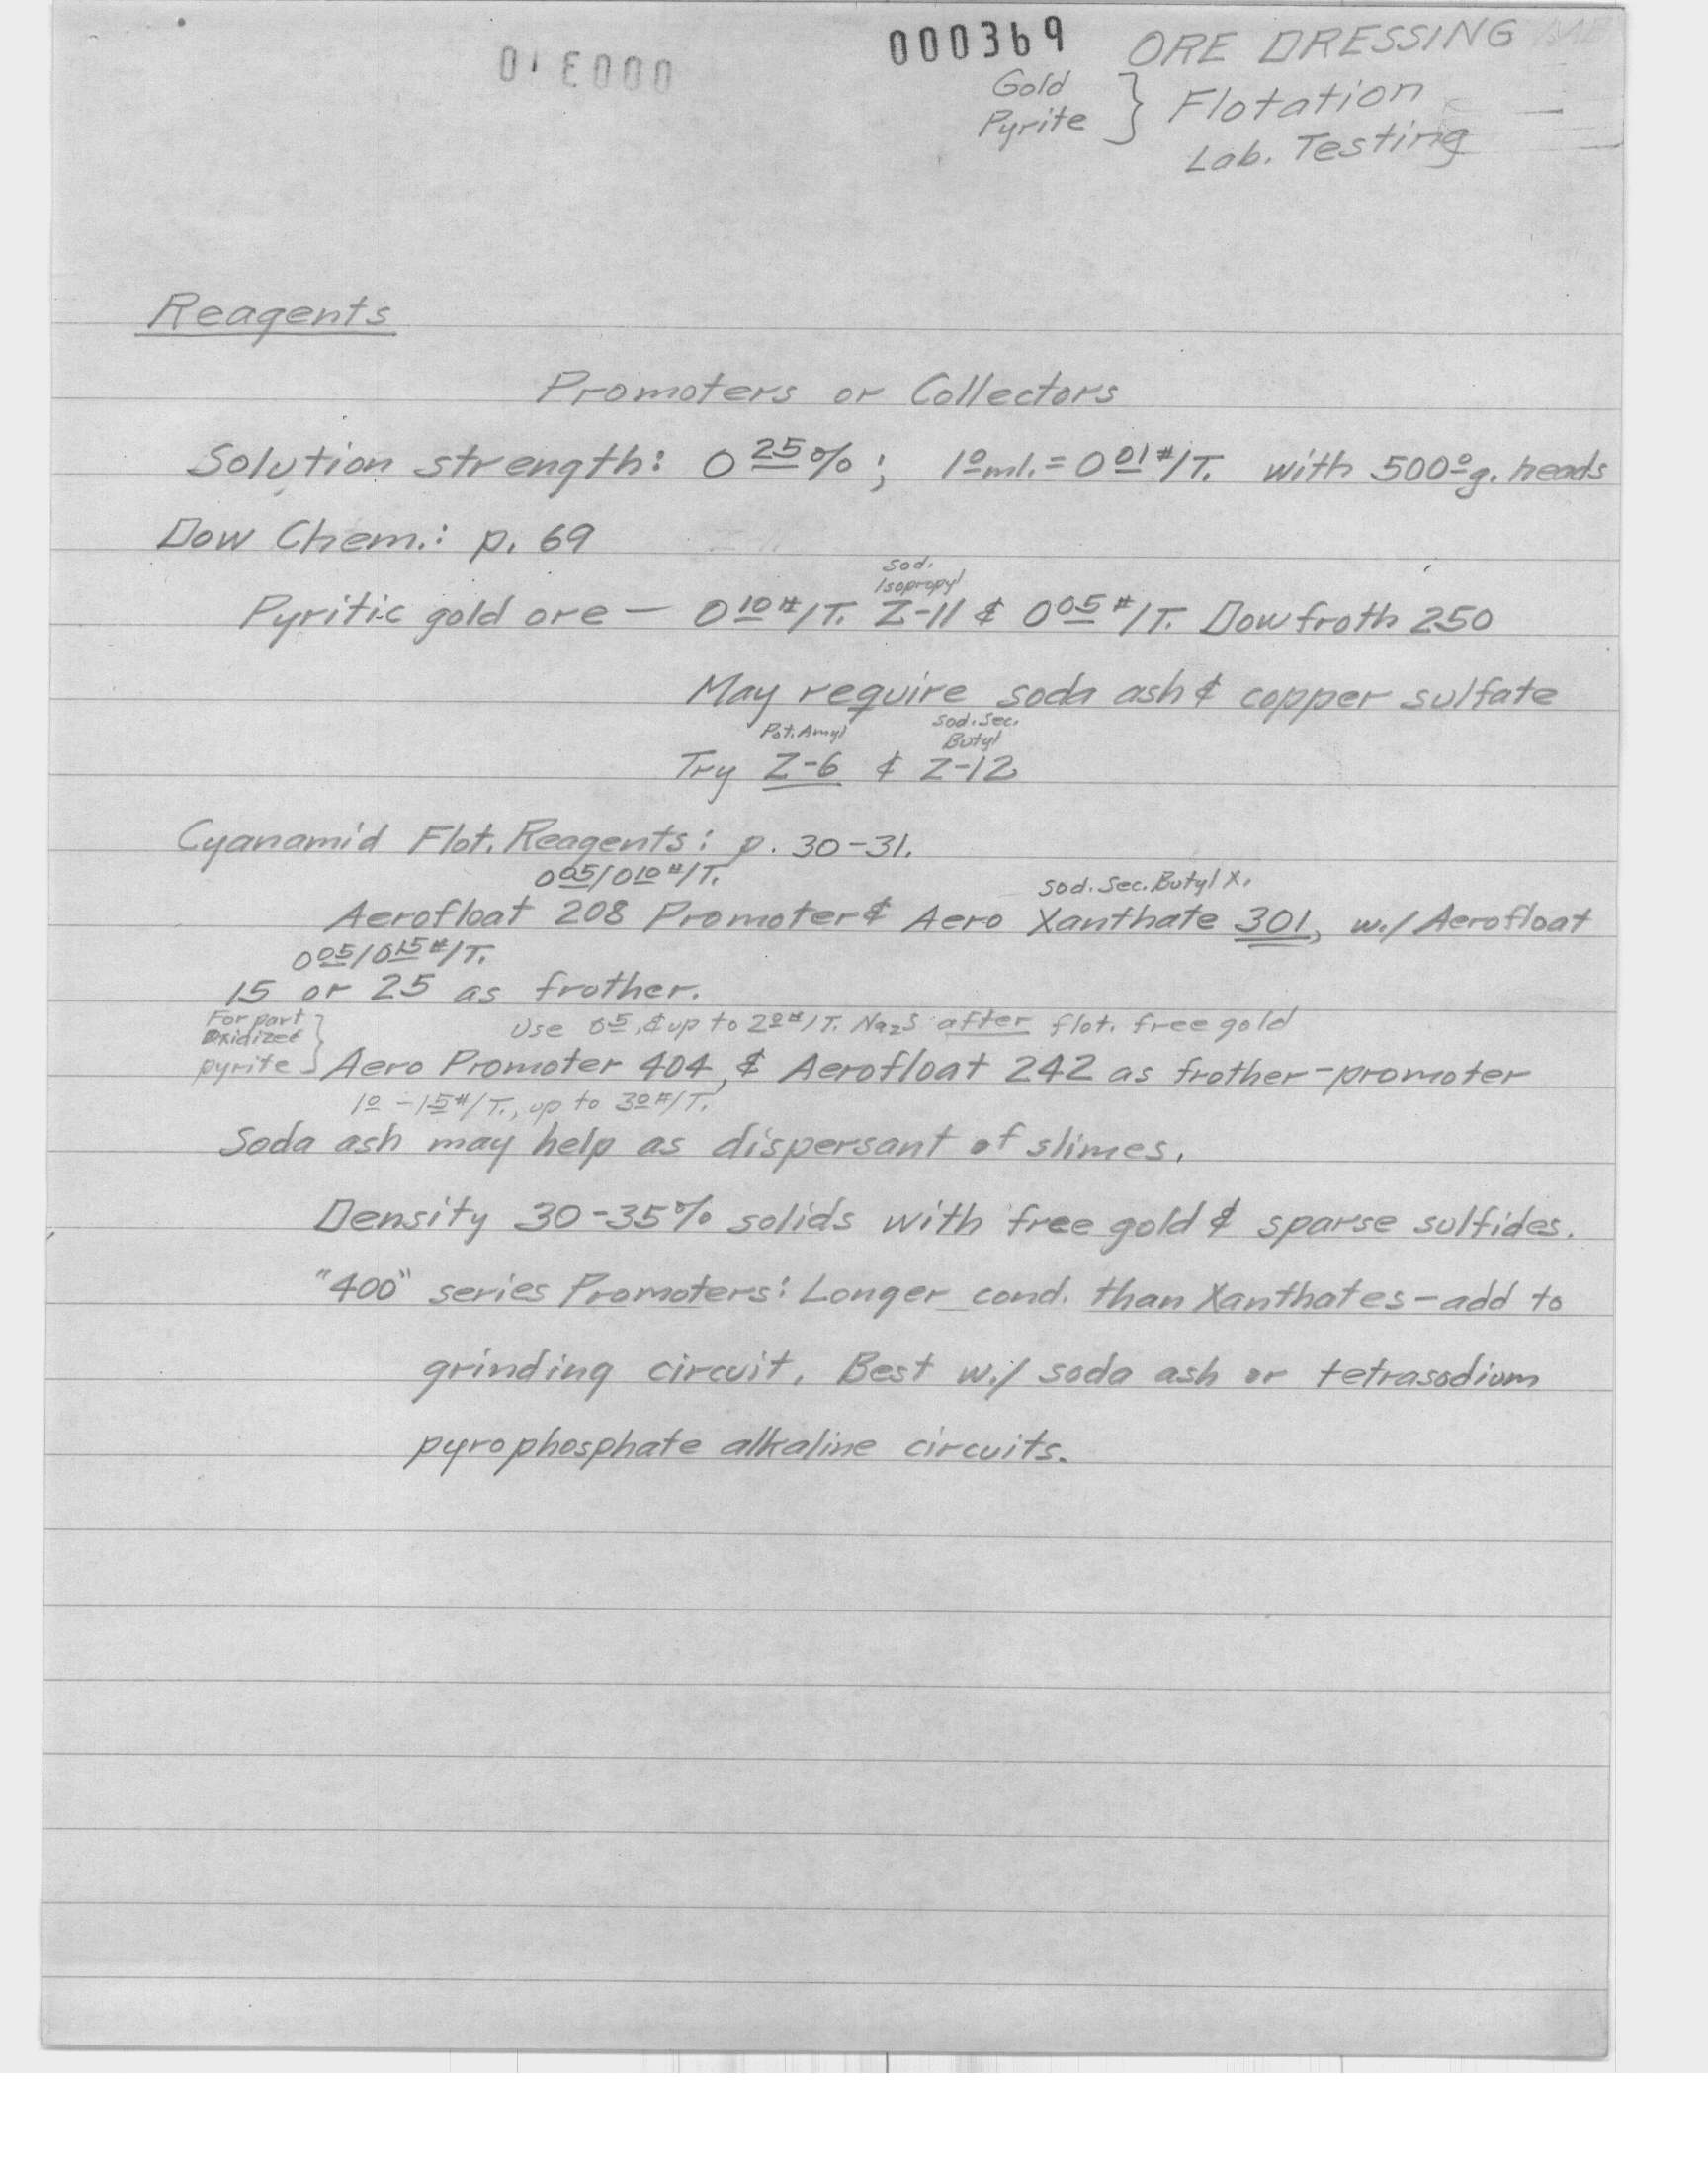 000369 ORE DRESSING
000310
Gold
Pyrite } Flotation
Lab. Testing
Reagents
Promoters or Collectors
Solution strength: 0 25%; 1 0 ml. = 0 01 #/T. with 500 0 g. heads
Dow Chem.: p. 69
Sod.
Isopropyl
Pyritic gold ore — 0 10 #/T. Z-11 & 0 05 #/T. Dowfroth 250
May require soda ash & copper sulfate
Pot. Amyl Sod. Sec.
Butyl
Try Z-6 & Z-12
Cyanamid Flot. Reagents: p. 30-31.
0 05/0 10 #/T. Sod. Sec. Butyl X.
Aerofloat 208 Promoter & Aero Xanthate 301, w./ Aerofloat
0 05/0 15 #/T.
15 or 25 as frother.
For part
Oxidized
pyrite }
Use 0 5, & up to 2 0 #/T. Na2S after flot. free gold
Aero Promoter 404, & Aerofloat 242 as frother-promoter
1 0 - 1 5 #/T., up to 3 0 #/T.
Soda ash may help as dispersant of slimes.
Density 30-35% solids with free gold & sparse sulfides.
"400" series Promoters: Longer cond. than Xanthates - add to
grinding circuit. Best w./ soda ash or tetrasodium
pyrophosphate alkaline circuits.